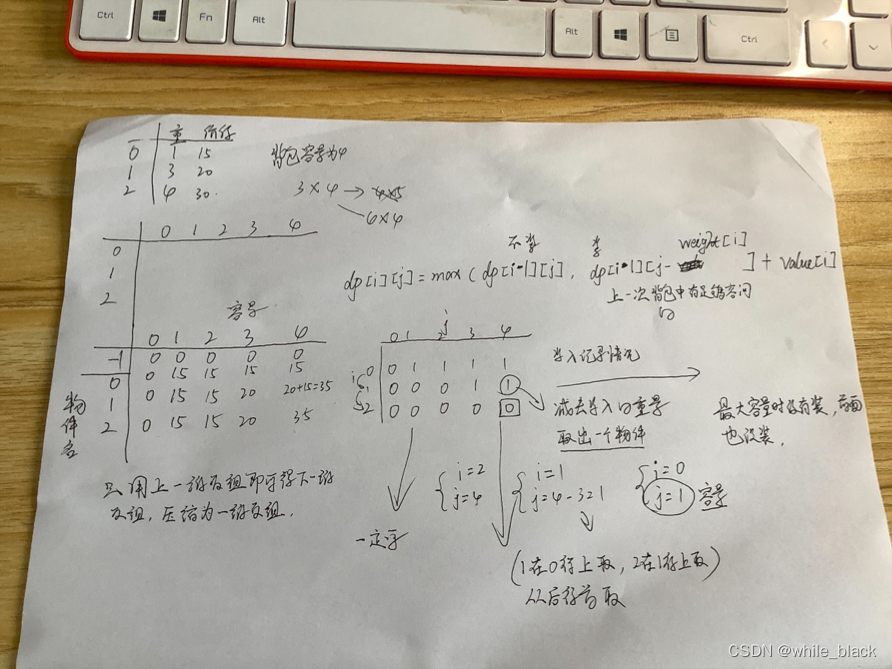 Ctrl Fn Alt Alt Ctrl
重 价值
0 1 15
1 3 20
2 4 30
背包容量为4
3×4→
6×4
0 1 2 3 4
0
1
2
不装 装 weight[i]
dp[i][j]=max(dp[i-1][j], dp[i-1][j- ]+value[i]
上一次背包中有足够空间
的
容量
0 1 2 3 4
-1 0 0 0 0 0
0 0 15 15 15 15
1 0 15 15 20 20+15=35
2 0 15 15 20 35
物
件
名
j
0 1 2 3 4
i 0 0 1 1 1 1
1 0 0 0 1 1
2 0 0 0 0 0
装入记录情况
减去装入的重量
取出一个物件
最大容量时没有装,前面
也没装.
只用上一维数组即可得下一维
数组,压缩为一维数组.
i=2
j=4
i=1
j=4-3=1
i=0
j=1 容量
一定子
(1在0行上取,2在1行上取)
从后往前取
CSDN @while_black